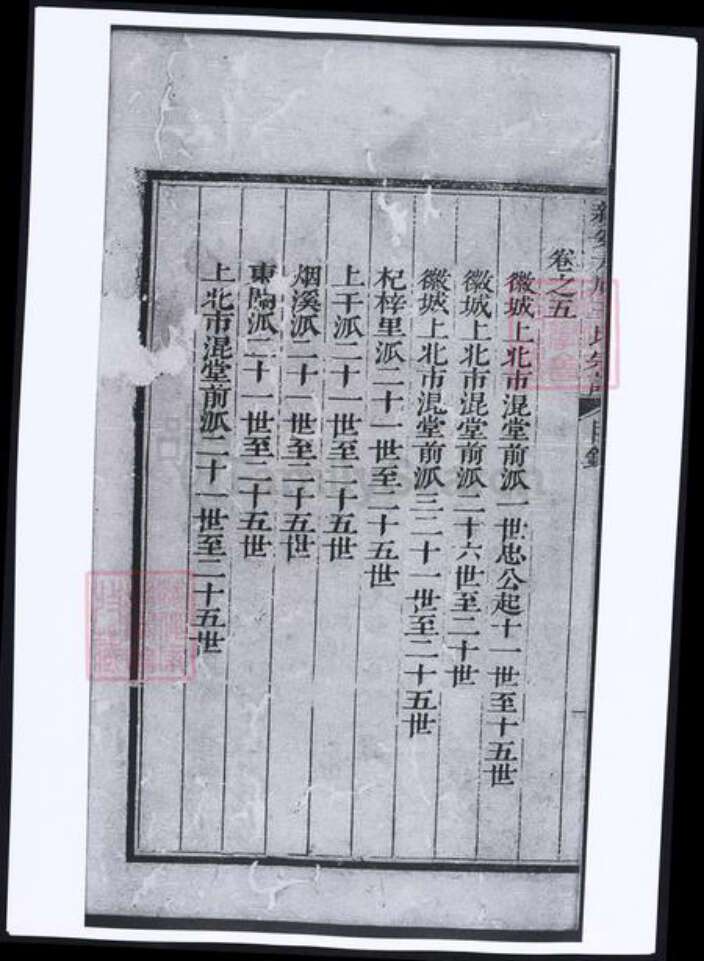 卷之五
徽城上北市混堂前派一世忠公起十一世至十五世
徽城上北市混堂前派二十六世至二十世
徽城上北市混堂前派三二十一世至二十五世
杞梓里派二十一世至二十五世
上干派二十一世至二十五世
烟溪派二十一世至二十五世
東關派二十一世至二十五世
上北市混堂前派二十一世至二十五世
目錄